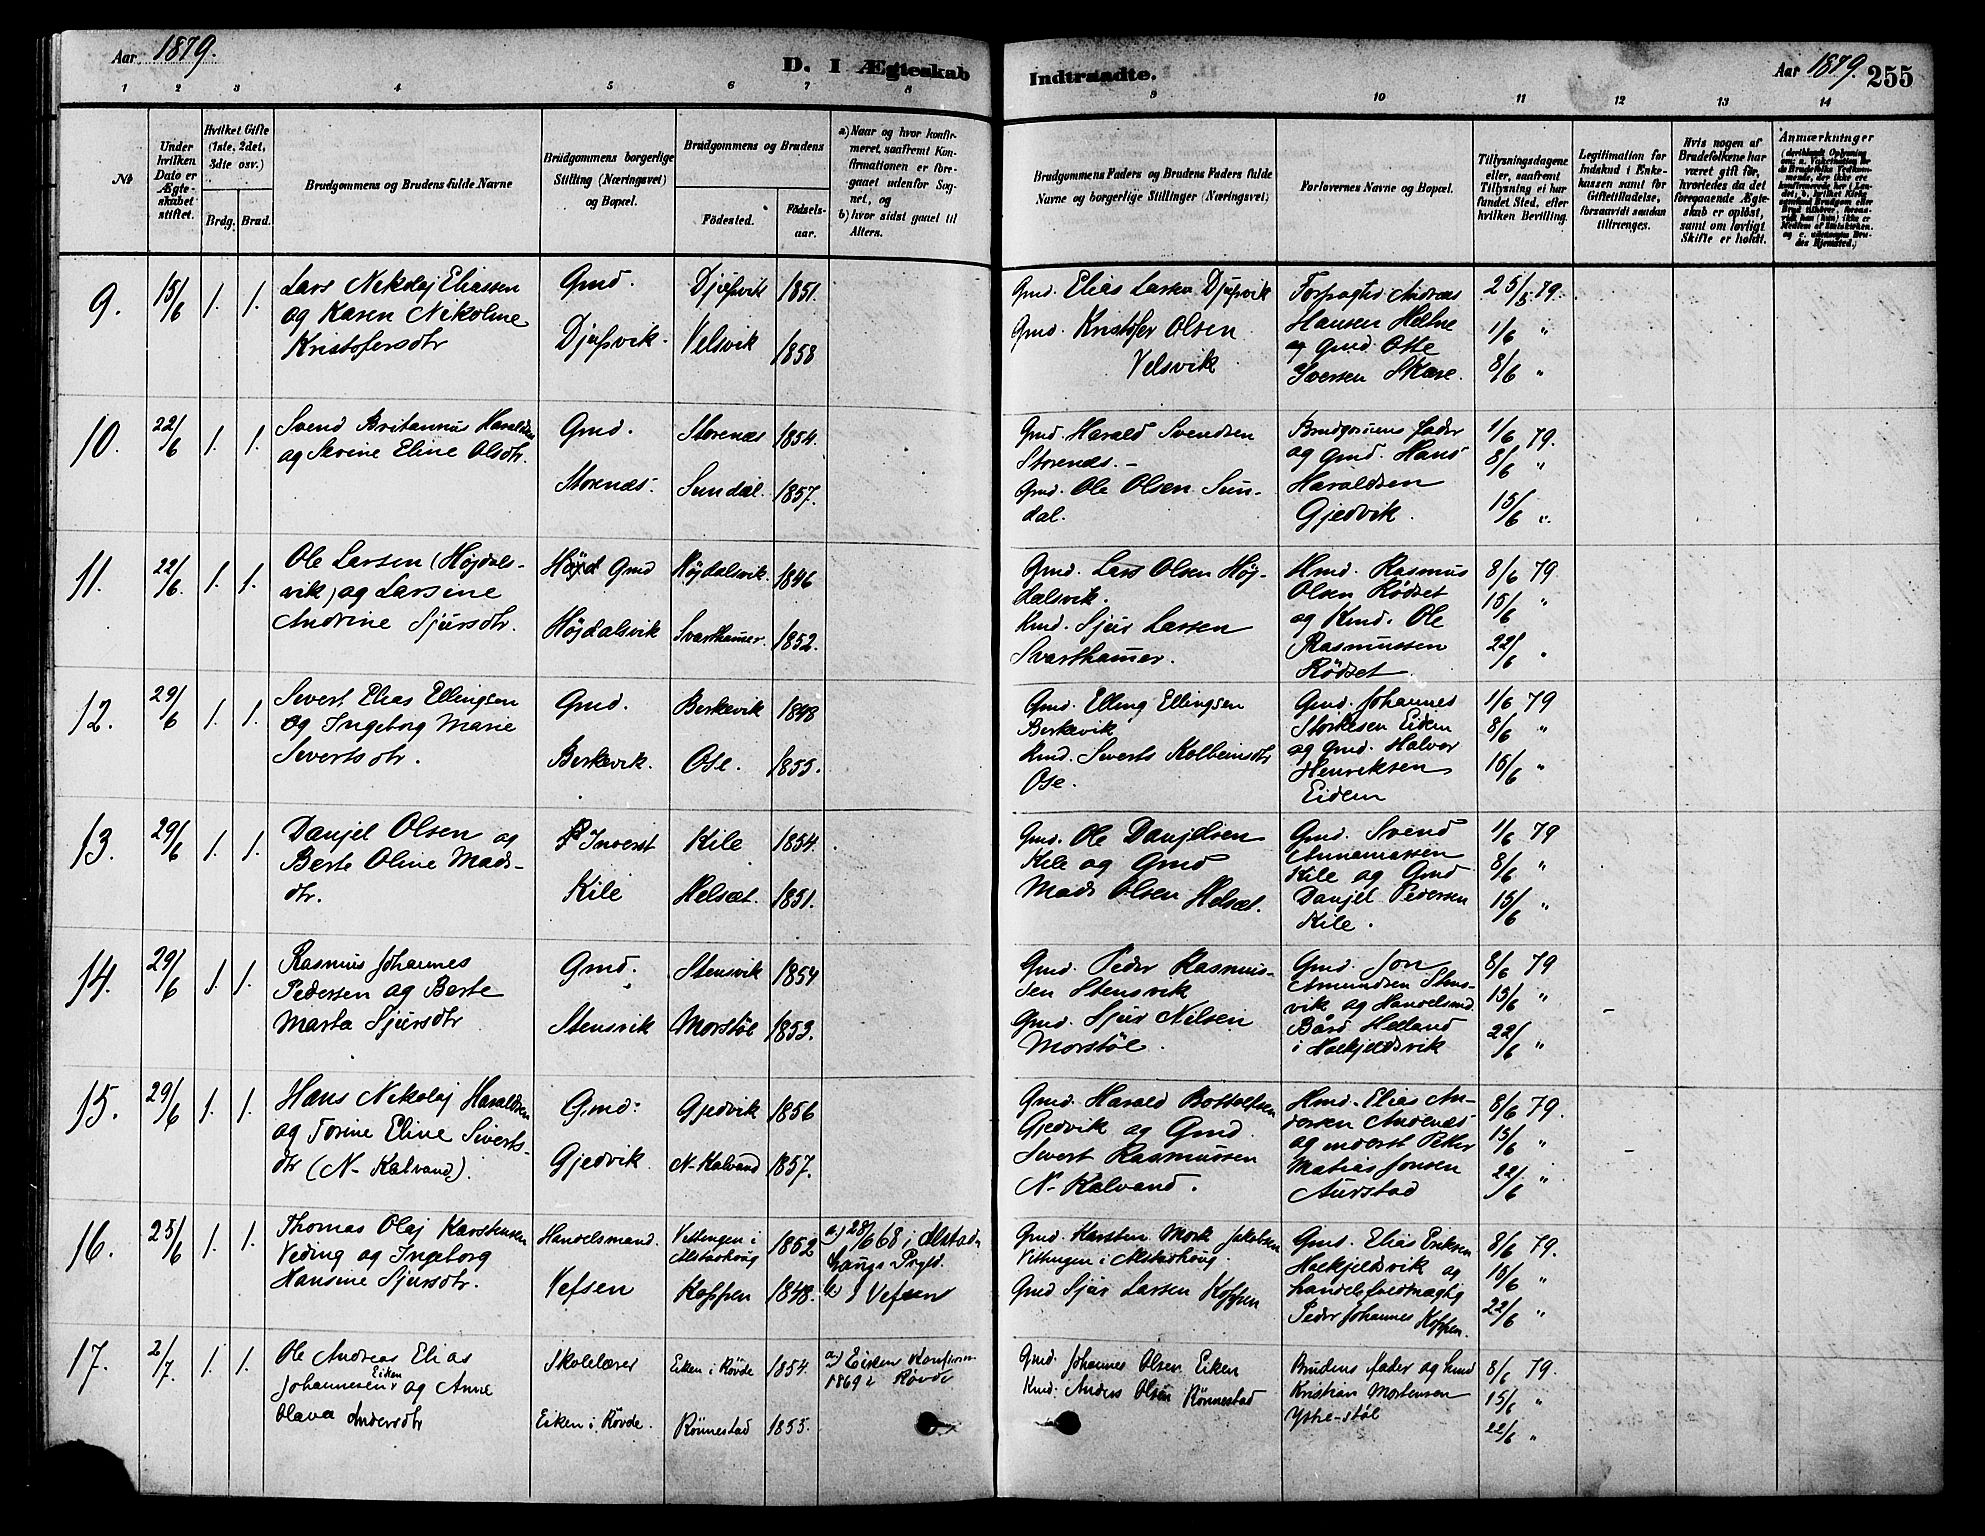 Aar 1879.
D. I Ægteskab
Indtraadte.
Aar 1879.
255
1 2 3 4 5 6 7 8
9 10 11 12 13 14
№
Under hvilken Dato er Ægteskabet stiftet.
Hvilket Gifte (1ste, 2det, 3die osv.)
Brdg. Brud.
Brudgommens og Brudens fulde Navne
Brudgommens borgerlige Stilling (Næringsvei) og Bopæl.
Brudgommens og Brudens
Födested.
Födselsaar.
a) Naar og hvor konfirmeret, saafremt Konfirmationen er foregaaet udenfor Sognet, og
b) hvor sidst gaaet til Alters.
Brudgommens Faders og Brudens Faders fulde Navne og borgerlige Stillinger (Næringsvei)
Forlovernes Navne og Bopæl.
Tillysningsdagene eller, saafremt Tillysning ei har fundet Sted, efter hvilken Bevilling.
Legitimation for Indskud i Enkekassen samt for Giftetilladelse, forsaavidt saadan tiltrænges.
Hvis nogen af Brudefolkene har været gift før, hvorledes da det foregaaende Ægteskab er opløst, samt om lovligt Skifte er holdt.
Anmærkninger
9. 15/6 1. 1.
Lars Nikolaj Eliassen
og Karen Nikoline
Kristofersdtr
Gmd.
Djupvik.
Djupvik 1851.
Velsvik 1858
Gmd. Elias Larsen Djupvik
Gmd. Kristofer Olsen
Velsvik
Forpagter Andreas
Hansen Heltne
og Gmd. Otte
Iversen Skare.
25/5 79.
1/6 "
8/6 "
10. 22/6 1. 1.
Svend Britannus Haraldsen
og Serine Eline Olsdtr.
Gmd.
Storenæs.
Storenæs 1854.
Sundal. 1857.
Gmd. Harald Svendsen
Storenæs.-
Gmd. Ole Olsen Sun-
dal.
Brudgomens fader
og Gmd. Hans
Haraldsen
Gjedvik.
1/6 79.
8/6 "
15/6 "
11. 22/6. 1. 1.
Ole Larsen (Højdals-
vik) og Larsine
Andrine Sjursdtr.
Gmd
Højdalsvik
Højdalsvik. 1846
Svarthamer. 1852.
Gmd. Lars Olsen Høj-
dalsvik.
Kmd. Sjur Larsen
Svarthamer.
Hmd. Rasmus
Olsen Rødset
og Kmd. Ole
Rasmussen
Rødset
8/6 79.
15/6 "
22/6 "
12. 29/6 1. 1.
Sivert Elias Ellingsen
og Ingeborg Marie
Sivertsdtr.
Gmd.
Berkevik.
Berkevik 1848
Ose. 1855.
Gmd. Elling Ellingsen
Berkevik
Kmd. Siverts Kolbeinsdtr
Ose.
Gmd. Johannes
Storkesen Eidem
og Gmd. Halvor
Henriksen
Eidem
1/6 79
8/6 "
15/6 "
13. 29/6 1. 1.
Danjel Olsen og
Berte Oline Mads-
dtr.
Inderst
Kile
Kile 1854.
Helsæt. 1851.
Gmd. Ole Danjelsen
Kile og Gmd
Mads Olsen Helsæt.
Gmd. Svend
Annanassen
Kile og Gmd
Danjel Pedersen
Kile.
1/6 79
8/6 "
15/6 "
14. 29/6 1. 1.
Rasmus Johannes
Pedersen og Berte
Marta Sjursdtr
Gmd.
Stensvik
Stensvik 1854
Morstøl 1853.
Gmd. Peder Rasmus-
sen Stensvik
Gmd. Sjur Nilsen
Morstøl.
Gmd. Jon
Amundsen Stens-
vik og Handelsmd.
Bård Helland
i Folkjeldsvik
8/6 79
15/6 "
22/6 "
15. 29/6 1. 1.
Hans Nikolaj Haraldsen
og Torine Eline Siverts-
dtr (N-Kalvand).
Gmd.
Gjedvik.
Gjedvik 1856
N-Kalvand 1857.
Gmd. Harald Bottolfsen
Gjedvik og Gmd.
Sivert Rasmussen
N-Kalvand.
Hmd. Elias An-
dersen Andenæs
og inderst Peter
Matias Jonsen
Aurstad
8/6 79.
15/6 "
22/6 "
16. 25/6 1. 1.
Thomas Olaj Karstensen
Veding og Ingeborg
Hansine Sjursdtr.
Handelsmand.
Vefsen
Vettingen i
Alstadhoug 1852
Koppen 1848.
a) 28/6 68 i Alstad-
hougs Prgld.
b) I Vefsen
Gmd. Karsten Mork Jakobsen
Vettingen i Alstadhoug.
Gmd Sjur Larsen Koppen
Gmd. Elias Eriksen
Folkjeldsvik og
handelsfuldmægtig
Peder Johannes Koppen.
8/6 79.
15/6 "
22/6 "
17. 2/7. 1. 1.
Ole Andreas Elias
Johannesen Eiken og Anne
Olava Andersdtr
Skolelærer
Eiken i Røvde.
Eiken i Røvde 1854.
Rønnestad 1855.
1869 i Røvde
Gmd. Johannes Olsen Eiken
Kmd. Anders Olsen Rønnestad
Brudens fader og Kmd
Kristian Mortensen
Ytre-støl
8/6 79.
15/6 "
22/6 "